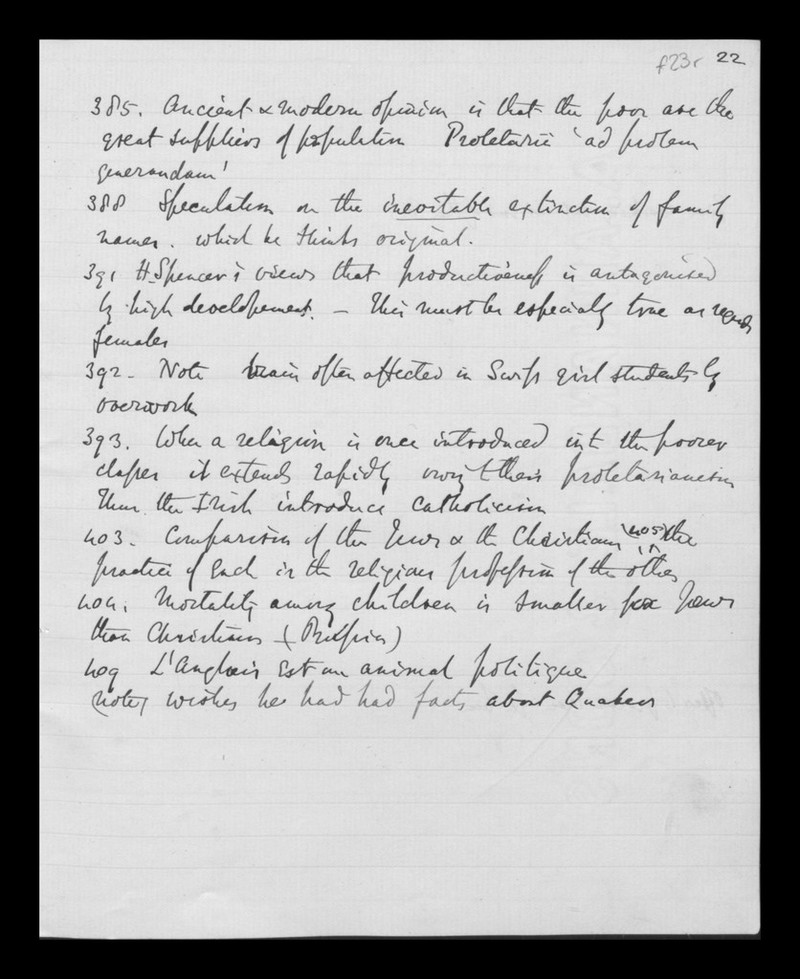 f23r 22
385. Ancient & modern opinion is that the poor are the
great suppliers of population Proletarii 'ad prolem
generandam'
388 Speculation on the inevitable extinction of family
names. which he thinks original.
391 H. Spencer's views that productiveness is antagonised
by high developement. – This must be especially true as regards
females
392 – Note brain often affected in Swiss girl students by
overwork
393. When a religion is once introduced into the poorer
classes it extends rapidly owing to their proletarianism
Thus the Irish introduce Catholicism
403. Comparison of the Jews & the Christians (405) the
practice of Each is the religious profession of the other
404. Mortality among children is smaller Jews
than Christians (Prussia)
409 L'Anglais Est un animal politique
(note) wishes he had had facts about Quakers